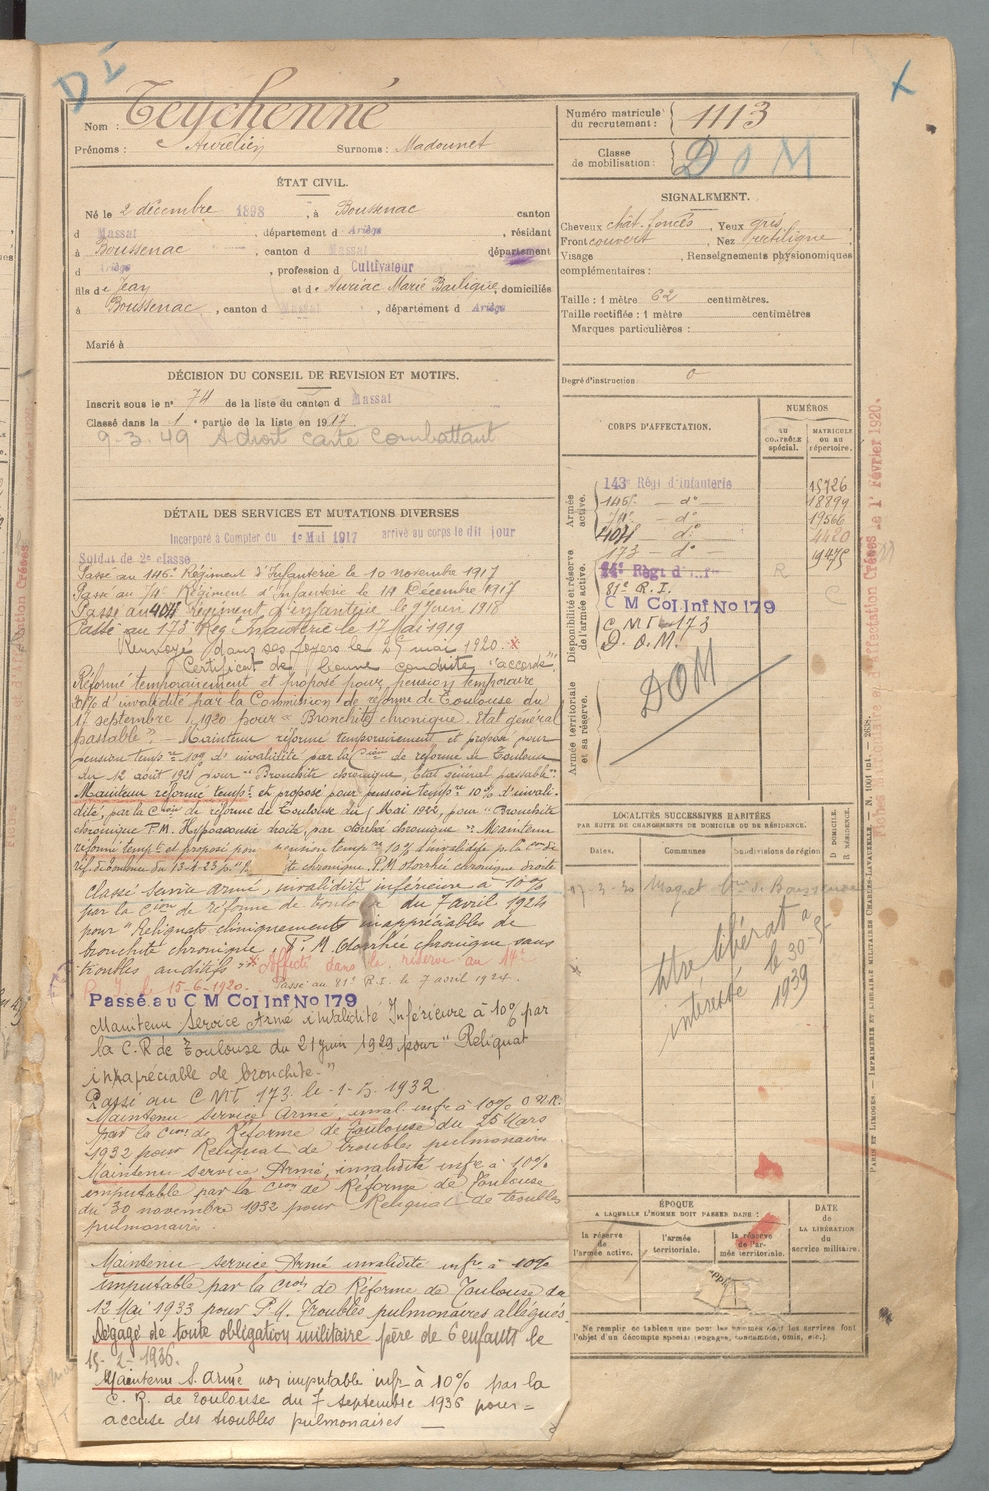 Nom : Teychenné
Prénoms : Aurélien Surnoms : Madounet
Numéro matricule du recrutement : 1113
Classe de mobilisation : DOM
ÉTAT CIVIL.
Né le 2 décembre 1898, à Boussenac canton
d Massat, département d Ariège, résidant
à Boussenac, canton d Massat département
d Ariège, profession d Cultivateur
fils de Jean et de Auriac Marie, domiciliés
à Boussenac, canton d Massat, département d Ariège
Marié à
SIGNALEMENT.
Cheveux chât. foncés, Yeux gris,
Front couvert, Nez rectiligne,
Visage , Renseignements physionomiques
complémentaires :
Taille : 1 mètre 62 centimètres.
Taille rectifiée : 1 mètre centimètres
Marques particulières :
Degré d'instruction : 0
DÉCISION DU CONSEIL DE REVISION ET MOTIFS.
Inscrit sous le n° 74 de la liste du canton d Massat
Classé dans la 1e partie de la liste en 1917
9-3.49 A droit carte Combattant
DÉTAIL DES SERVICES ET MUTATIONS DIVERSES
Incorporé à Compter du 1e Mai 1917 arrivé au corps le dit jour
Soldat de 2e classe
Passé au 146e Régiment d'Infanterie le 10 novembre 1917
Passé au 74e Régiment d'infanterie le 19 Décembre 1917
Passé au 404 régiment d'infanterie le 9 Juin 1918
Passé au 173e Regt Infanterie le 17 Mai 1919
Renvoyé dans ses foyers le 25 mai 1920. x
Certificat de bonne conduite "accordé".
Réformé temporairement et proposé pour pension temporaire
20% d'invalidité par la Commission de réforme de Toulouse du
17 septembre 1920 pour "Bronchite chronique. Etat général
passable". Maintenu réformé temporairement et proposé pour
pension temp.re 10% d'invalidité par la Cion de réforme de Toulouse
du 12 août 1921 pour "Bronchite chronique, Etat général passable".
Maintenu réformé tempt et proposé pour pension tempre 10% d'invali-
dité, par la Cion de réforme de Toulouse du Mai 1922, pour "Bronchite
chronique P.M. Hypoacousie droite, par otorrhée chronique". Maintenu
réformé tempt et proposé pour pension tempre 10% d'invalidité p. la Con de
réf. de Toulouse du 13-4-23 pr te chronique. P.M. Otorrhée chronique droite
Classé service armé, invalidité inférieure à 10%
par la Cion de réforme de Toulouse du 7 avril 1924
pour "Reliquats cliniquements inappréciables de
bronchite chronique, P.M. Otorrhée chronique sans
troubles auditifs". x Affecté dans la réserve au 14e
R.I. le 15-6-1920. Passé au 81e R.I. le 7 avril 1924.
Passé au C M Col Inf No 179
Maintenu Service Armé invalidité Inférieure à 10% par
la C.R de Toulouse du 21 juin 1929 pour "Reliquat
inapréciable de bronchite."
Passé au C M I 173. le 1-5-1932
Maintenu service armé, inval. infre à 10%
par la Cion de Réforme de Toulouse du 25 Mars
1932 pour Reliquat de troubles pulmonaires
Maintenu service Armé, invalidité infre à 10%
imputable par la Cion de Réforme de Toulouse
du 30 novembre 1932 pour Reliquat de troubles
pulmonaires.
Maintenu service Armé invalidité infre à 10%
imputable par la Cion de Réforme de Toulouse du
12 Mai 1933 pour P.M. Troubles pulmonaires allégués.
Dégagé de toute obligation militaire père de 6 enfants le
15-2-1936.
Maintenu S. armé non imputable infr à 10% par la
C. R. de Toulouse du 7 septembre 1936 pour=
accuse des troubles pulmonaires
CORPS D'AFFECTATION.
NUMÉROS
AU CONTRÔLE spécial.
MATRICULE ou au répertoire.
Armée active.
143e Régt d'infanterie 15726
146e — do 18899
74e — do 19566
404 — do 4420
173 — do 19475
Disponibilité et réserve de l'armée active.
14e Régt d'Inf R
81e R.I.
C M Col Inf No 179 C
C M I 173
D. O. M.
Armée territoriale et sa réserve.
DOM
LOCALITÉS SUCCESSIVES HABITÉES
PAR SUITE DE CHANGEMENTS DE DOMICILE OU DE RÉSIDENCE.
Dates.
Communes
Subdivisions de région
D DOMICILE.
R RÉSIDENCE.
titre libérat
intéressé le 30-
1939
ÉPOQUE
A LAQUELLE L'HOMME DOIT PASSER DANS :
la réserve de l'armée active.
l'armée territoriale.
la réserve de l'armée territoriale.
DATE de LA LIBÉRATION du service militaire.
Ne remplir ce tableau que pour les hommes dont les services font
l'objet d'un décompte spécial (engagés, condamnés, omis, etc.).
PARIS ET LIMOGES. — IMPRIMERIE ET LIBRAIRIE MILITAIRES CHARLES-LAVAUZELLE. — N. 1001 int. — 2638.